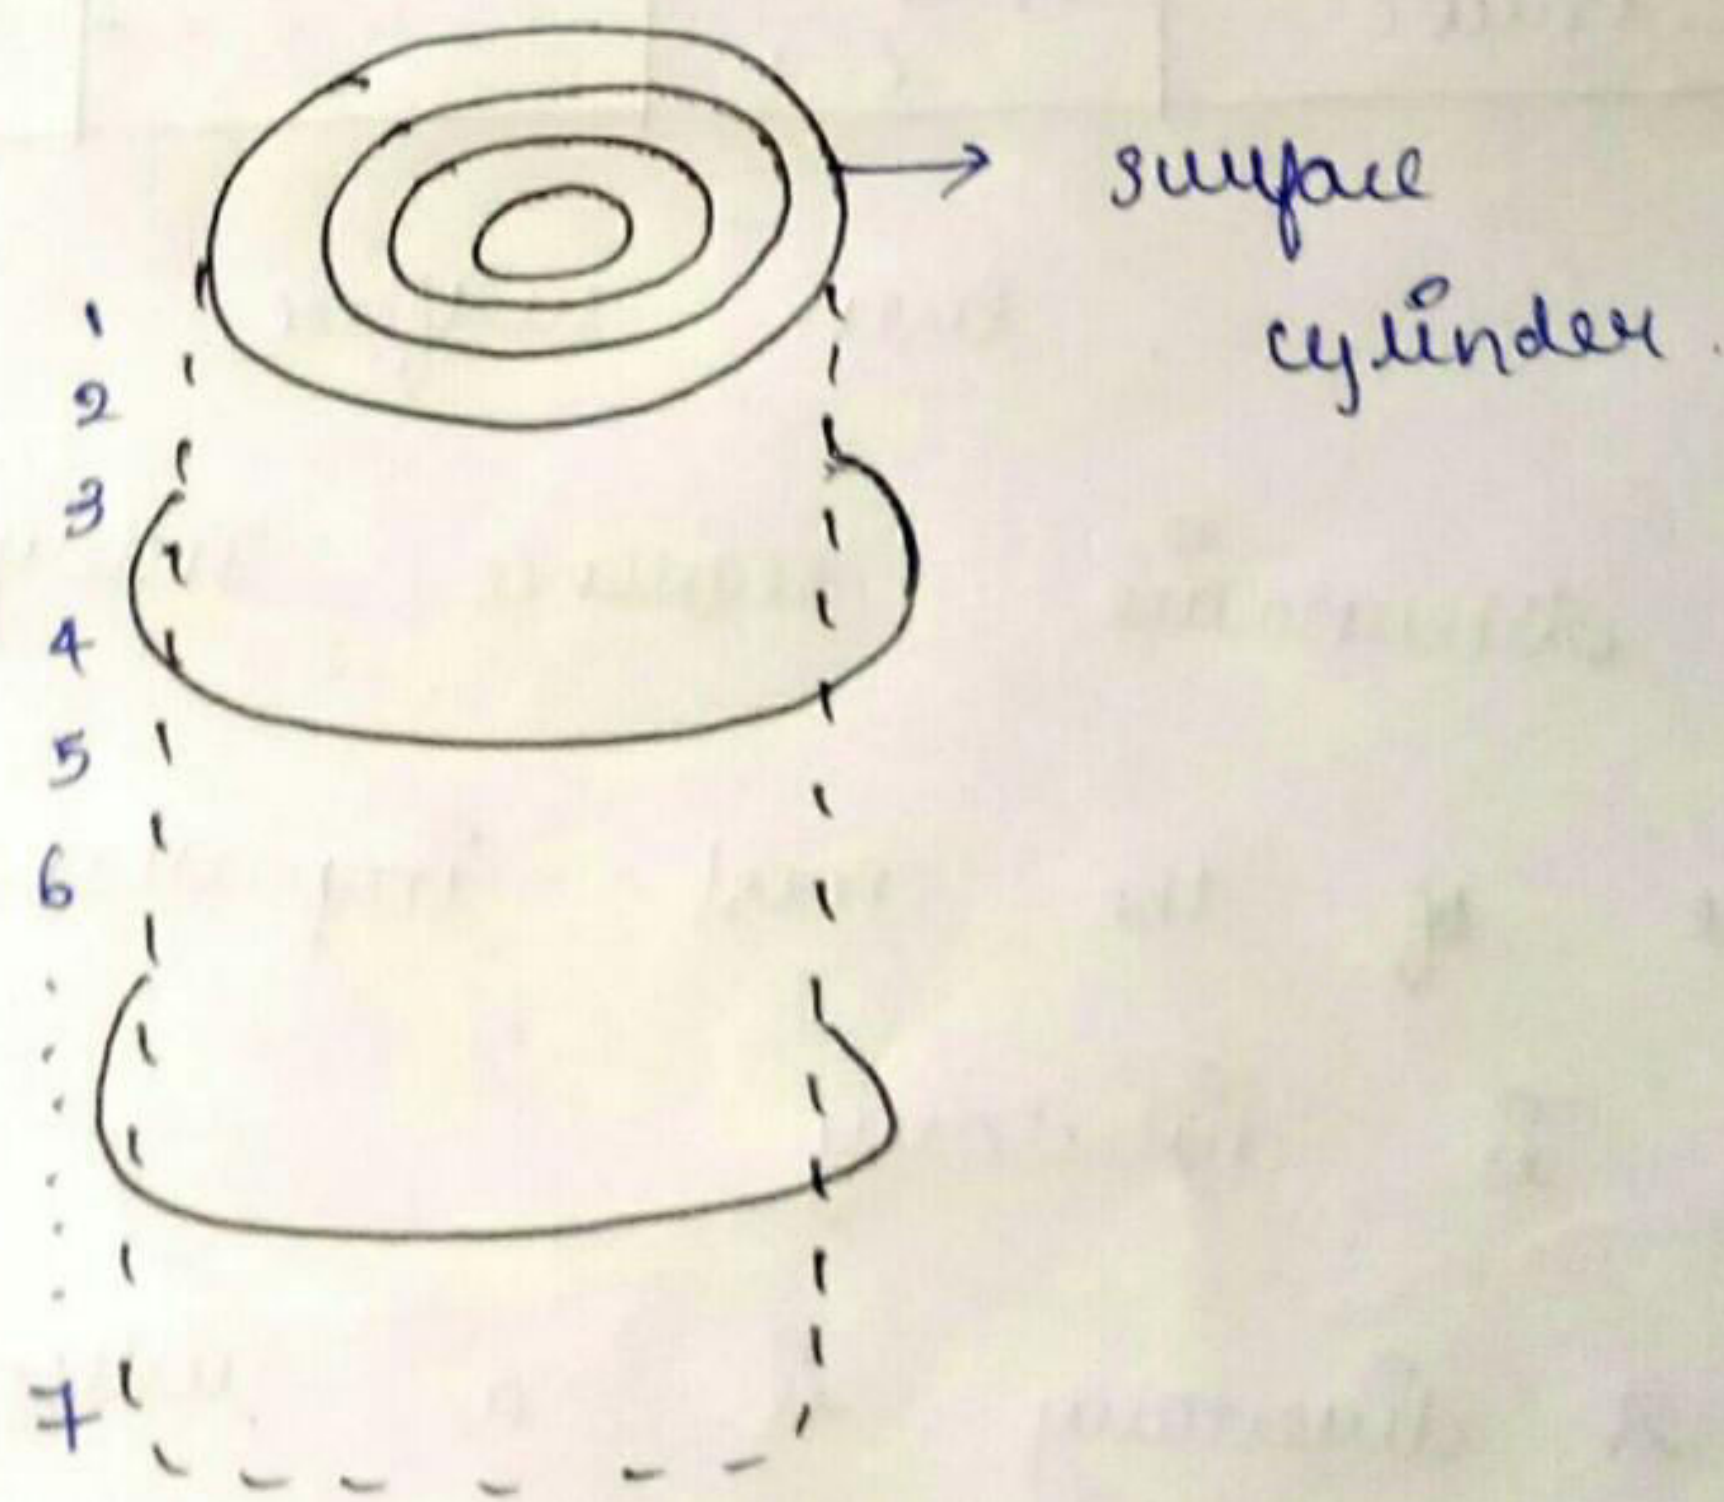 surface
cylinder
1
2
3
4
5
6
7